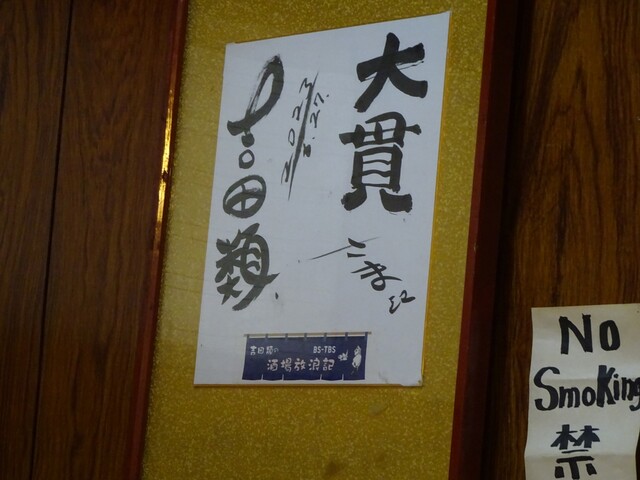 大貫
さま江
2023
8.27.
吉田類
吉田類の
BS-TBS
酒場放浪記
NO
Smoking
禁